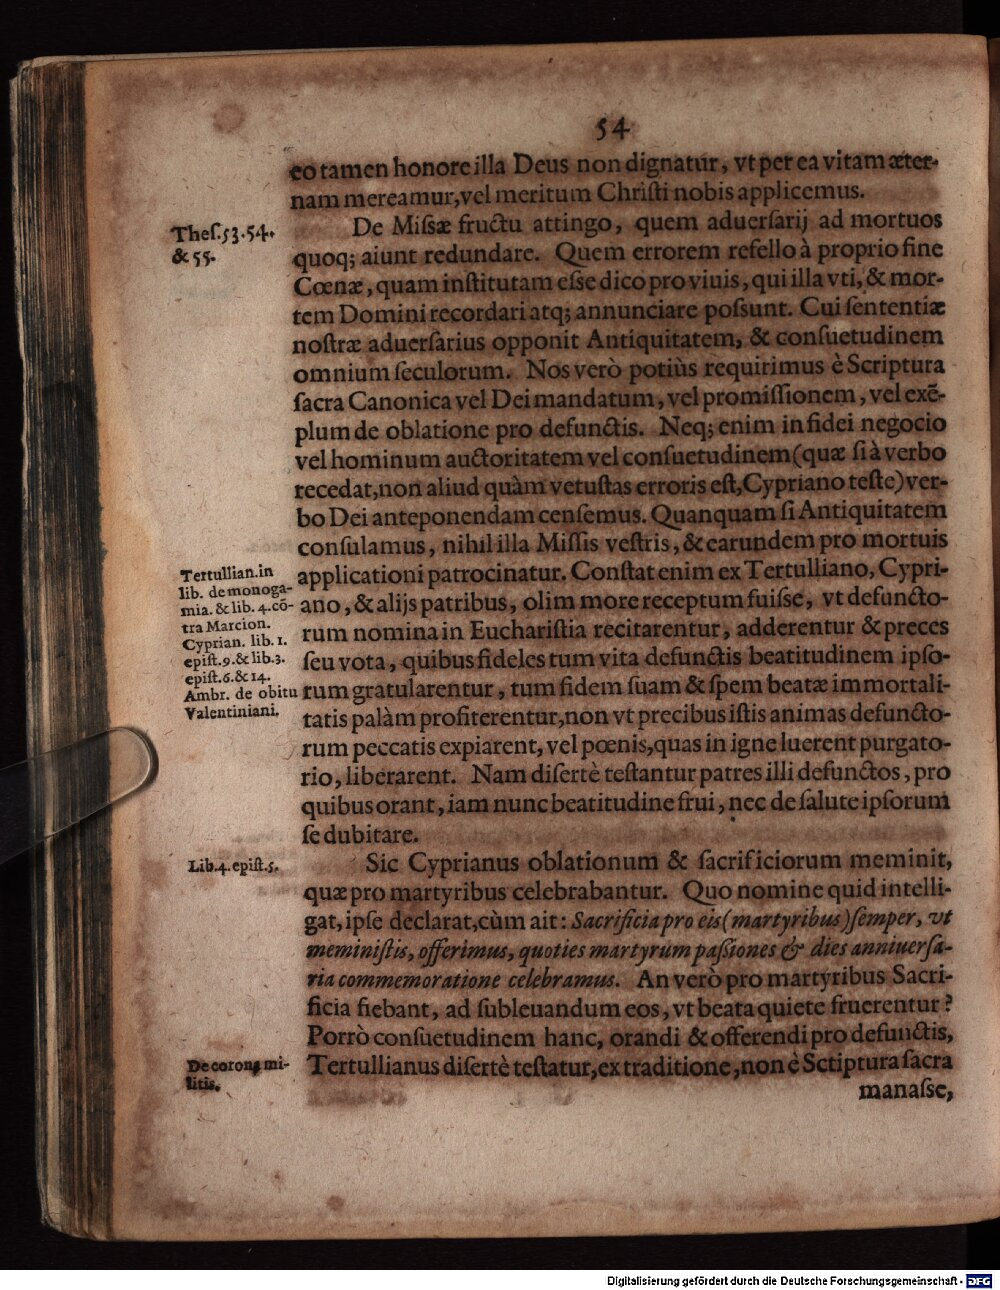 54
eo tamen honore illa Deus non dignatur, vt per ea vitam æter-
nam mereamur, vel meritum Christi nobis applicemus.
Thes. 53. 54.
& 55.
De Missæ fructu attingo, quem aduersarij ad mortuos
quoq; aiunt redundare. Quem errorem refello à proprio fine
Cœnæ, quam institutam esse dico pro viuis, qui illa vti, & mor-
tem Domini recordari atq; annunciare possunt. Cui sententiæ
nostræ aduersarius opponit Antiquitatem, & consuetudinem
omnium seculorum. Nos verò potiùs requirimus è Scriptura
sacra Canonica vel Dei mandatum, vel promissionem, vel exē-
plum de oblatione pro defunctis. Neq; enim in fidei negocio
vel hominum auctoritatem vel consuetudinem (quæ si à verbo
recedat, non aliud quàm vetustas erroris est, Cypriano teste) ver-
bo Dei anteponendam censemus. Quanquam si Antiquitatem
consulamus, nihil illa Missis vestris, & earundem pro mortuis
applicationi patrocinatur. Constat enim ex Tertulliano, Cypri-
ano, & alijs patribus, olim more receptum fuisse, vt defuncto-
rum nomina in Eucharistia recitarentur, adderentur & preces
seu vota, quibus fideles tum vita defunctis beatitudinem ipso-
rum gratularentur, tum fidem suam & spem beatæ immortali-
tatis palàm profiterentur, non vt precibus istis animas defuncto-
rum peccatis expiarent, vel pœnis, quas in igne luerent purgato-
rio, liberarent. Nam disertè testantur patres illi defunctos, pro
quibus orant, iam nunc beatitudine frui, nec de salute ipsorum
se dubitare.
Tertullian. in
lib. de monoga-
mia. & lib. 4. cō-
tra Marcion.
Cyprian. lib. 1.
epist. 9. & lib. 3.
epist. 6. & 14.
Ambr. de obitu
Valentiniani.
Lib. 4. epist. 5.
Sic Cyprianus oblationum & sacrificiorum meminit,
quæ pro martyribus celebrabantur. Quo nomine quid intelli-
gat, ipse declarat, cùm ait: Sacrificia pro eis (martyribus) semper, vt
meministis, offerimus, quoties martyrum passiones & dies anniuersa-
ria commemoratione celebramus. An verò pro martyribus Sacri-
ficia fiebant, ad subleuandum eos, vt beata quiete fruerentur?
Porrò consuetudinem hanc, orandi & offerendi pro defunctis,
Tertullianus disertè testatur, ex traditione, non è Sctiptura sacra
De corona mi-
litis.
manasse,
Digitalisierung gefördert durch die Deutsche Forschungsgemeinschaft - DFG